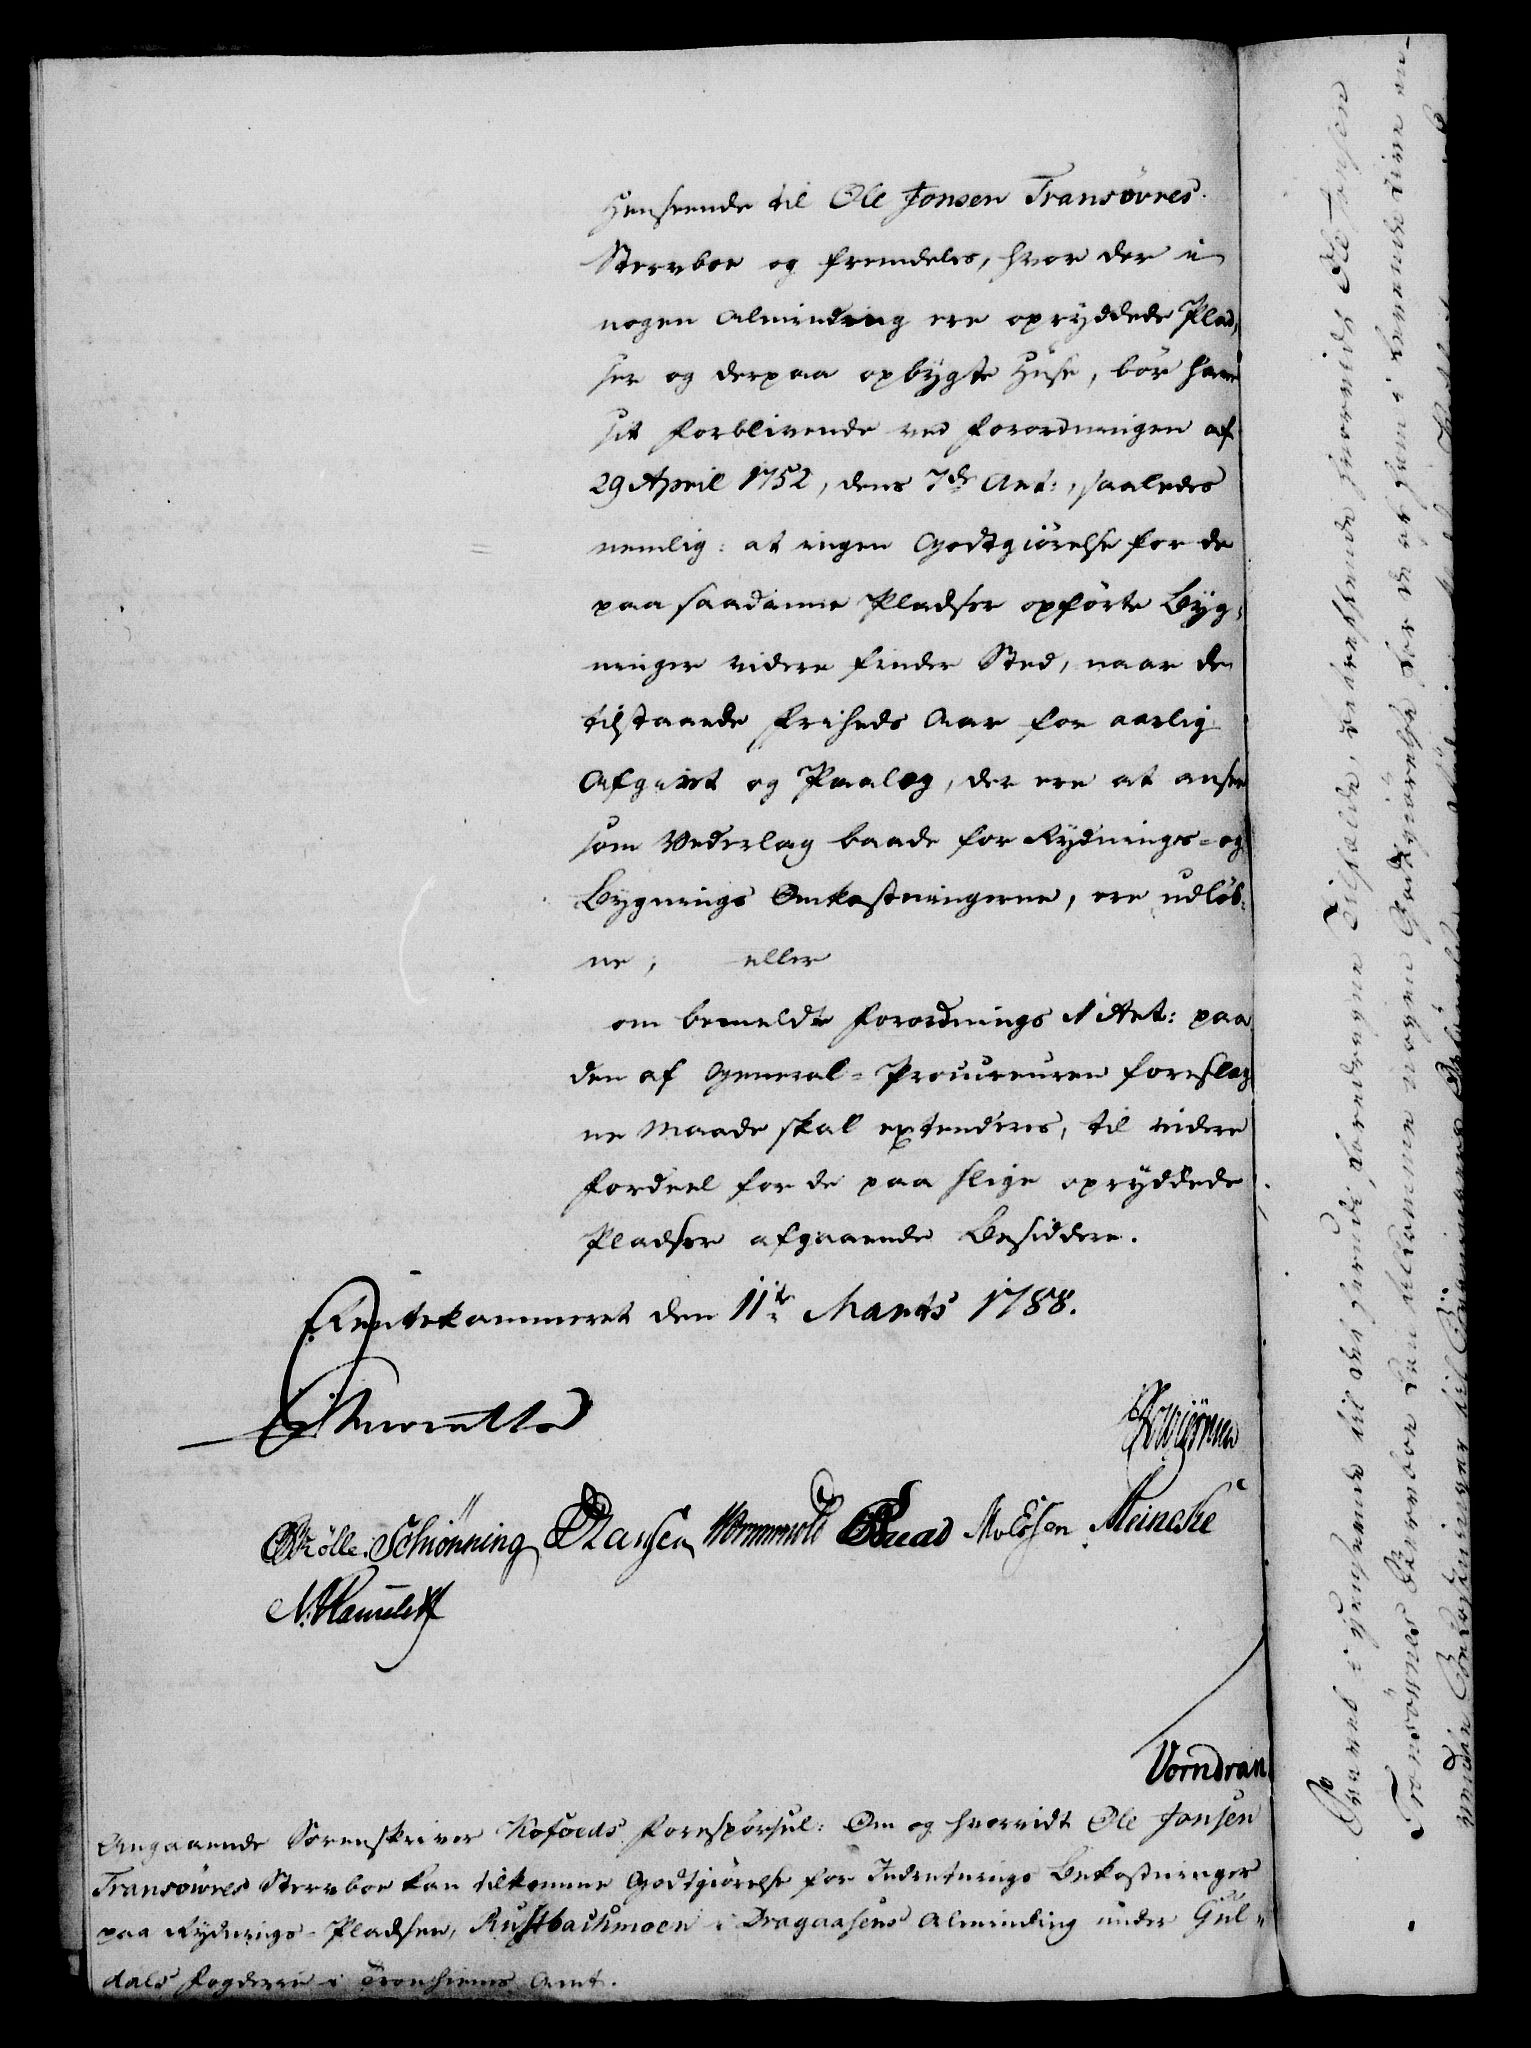 Henseende til Ole Jonsen Transövres
Stervboe og fremdeles, hvor der i
nogen Alminding ere opryddede Plad,
ser og derpaa opbygte Huse, bör have
sit Forblivende ved Forordningen af
29 April 1752, dens 7de Art:, saaledes
nemlig: at ingen Godtgiörelse for de
paa saadanne Pladser opförte Byg,
ninger videre finder Sted, naar de
tilstaaede Friheds Aar for aarlig
Afgivt og Paalæg, der ere at ansee
som Vederlag baade for Rydnings- og
Bygnings Omkostningerne, ere udlöb,
ne, eller
om bemeldte Forordnings 1 Art: paa
den af General-Procureuren foreslag
ne Maade skal extenderes, til videre
Fordeel for de paa slige opryddede
Pladser afgaaende Besiddere.
Rentekammeret den 11te Marts 1788.
Schiönning Hansen Wormwold Meincke
Vorndran
Angaaende Sorenskriver Kofoeds Forespörsul: Om og hvorvidt Ole Jonsen
Transövres Stervboe kan tilkomme Godtgiörelse for Indretnings Bekostninger
paa Rydnings-Pladsen, Rustbachmoen i Dragaasens Alminding under Gul-
dals Fogderie i Tronhiems Amt.
i Henseende til det herunder foredragne Tilfælde, betreffende hvorvidt Ole Jonsen
Transövres Stervboe kan tilkomme nogen Godtgiörelse for de af ham i levende Live an-